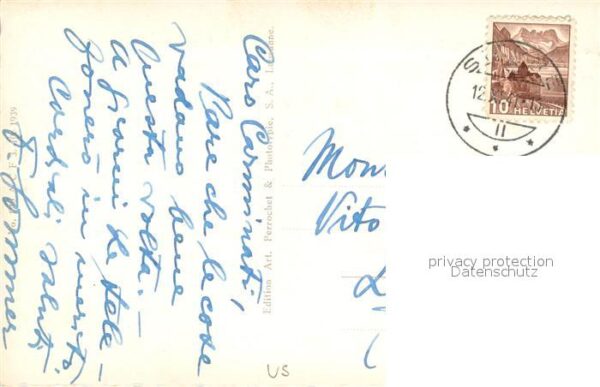 Caro Carminati,
Pare che le cose
vadano bene
questa volta. —
A giorni te tele-
fonerò in merito,
Cordiali saluti
Sommer
1939
Edition Art. Perrochet & Phototypie, S. A., Lausanne.
10 HELVETIA
12
II
Vito
privacy protection
Datenschutz
US